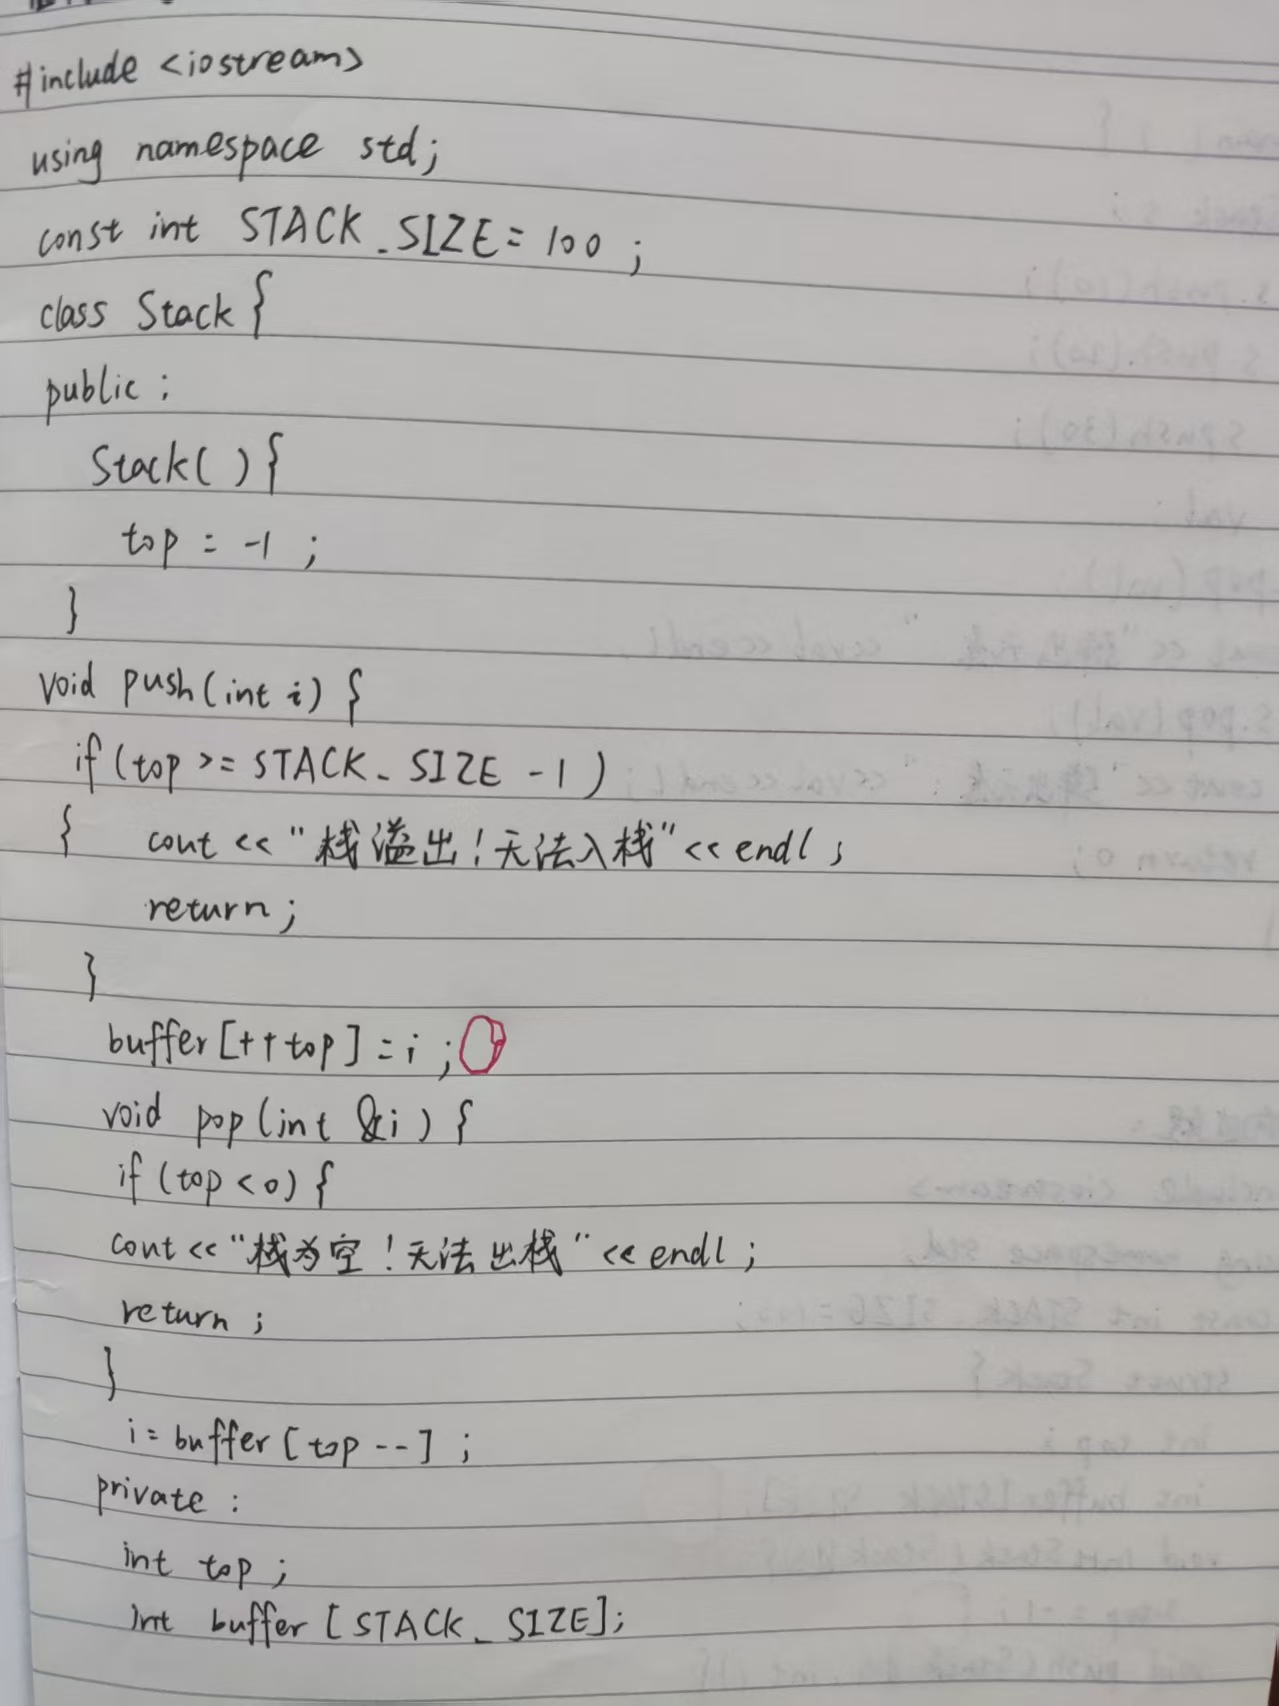 #include <iostream>
using namespace std;
const int STACK_SIZE = 100 ;
class Stack {
public :
Stack( ) {
top = -1 ;
}
void push(int i) {
if (top >= STACK_SIZE -1)
{ cout << "栈溢出!无法入栈"<< endl ;
return ;
}
buffer[++top] = i ;
void pop(int &i) {
if (top < 0) {
cout << "栈为空!无法出栈" << endl ;
return ;
}
i = buffer [top --] ;
private :
int top ;
int buffer [STACK_SIZE];